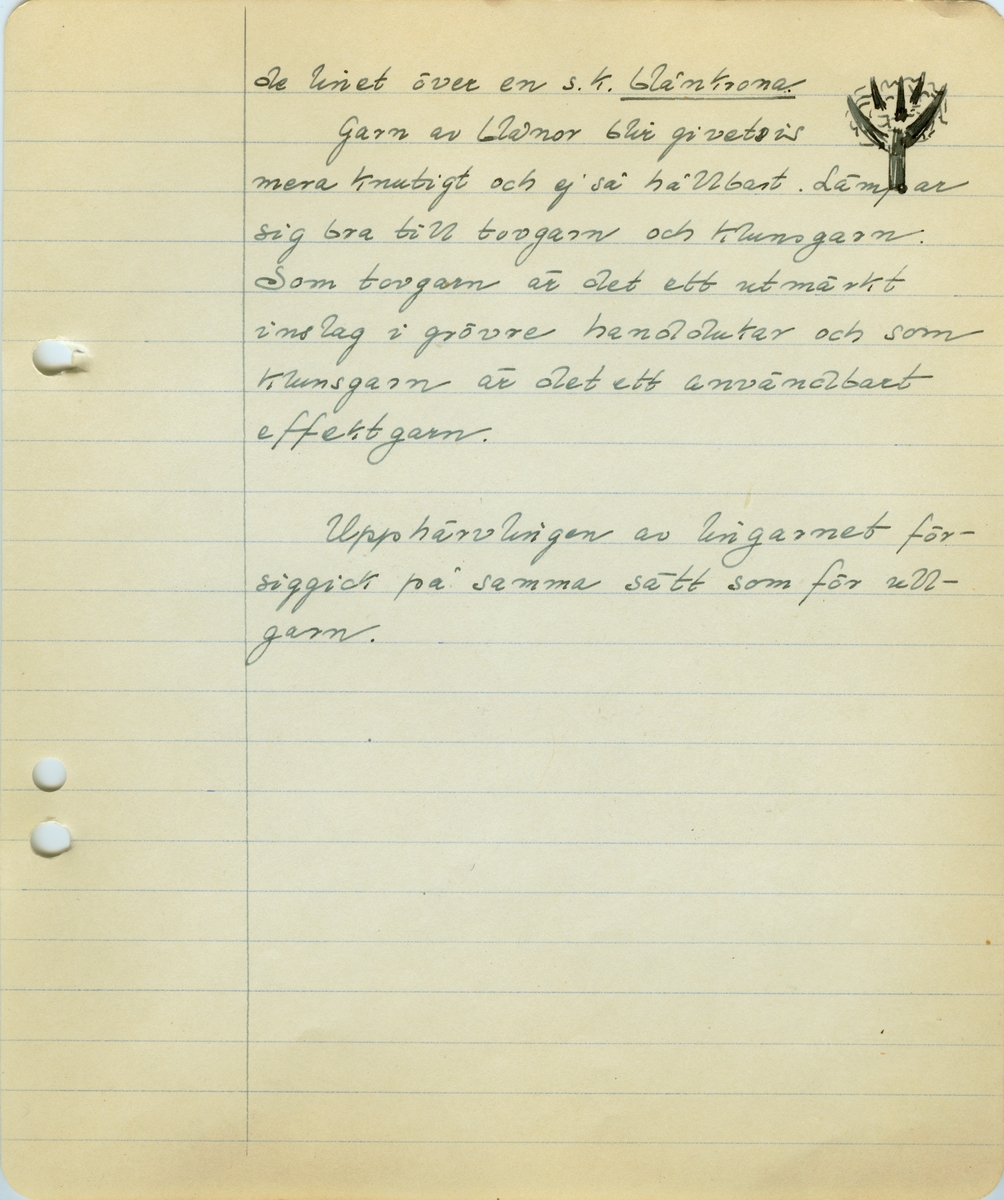 de linet över en s.k. blånkrona.
Garn av blånor blir givetvis
mera knutigt och ej så hållbart. Lämpar
sig bra till tovgarn och klunsgarn.
Som tovgarn är det ett utmärkt
inslag i grövre handdukar och som
klunsgarn är det ett användbart
effektgarn.
Upphärvlingen av lingarnet för-
siggick på samma sätt som för ull-
garn.